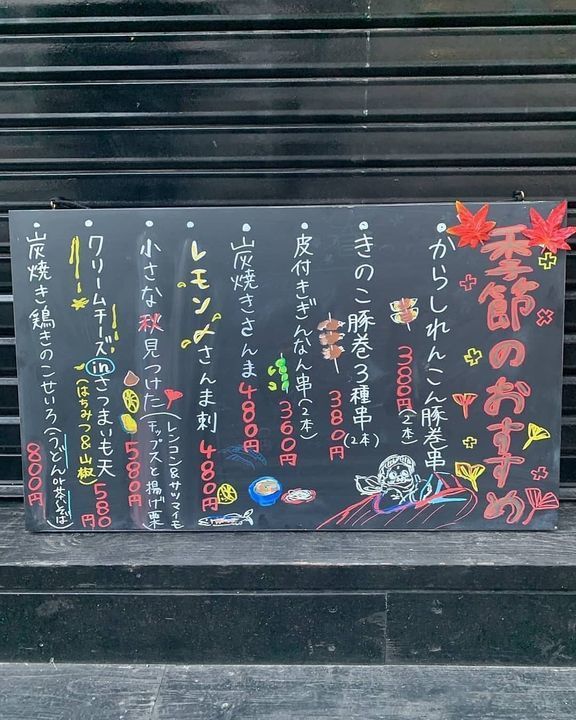 季節のおすすめ
・からしれんこん豚巻串
380円(2本)
・きのこ豚巻3種串(2本)
380円
・皮付きぎんなん串(2本)
360円
・炭焼きさんま 480円
・レモン〆さんま刺 480円
・小さな秋見つけた(レンコン&サツマイモ
チップスと揚げ栗)
580円
・クリームチーズinさつまいも天
(はちみつ&山椒) 580円
・炭焼き鶏きのこせいろ(うどんor茶そば)
800円